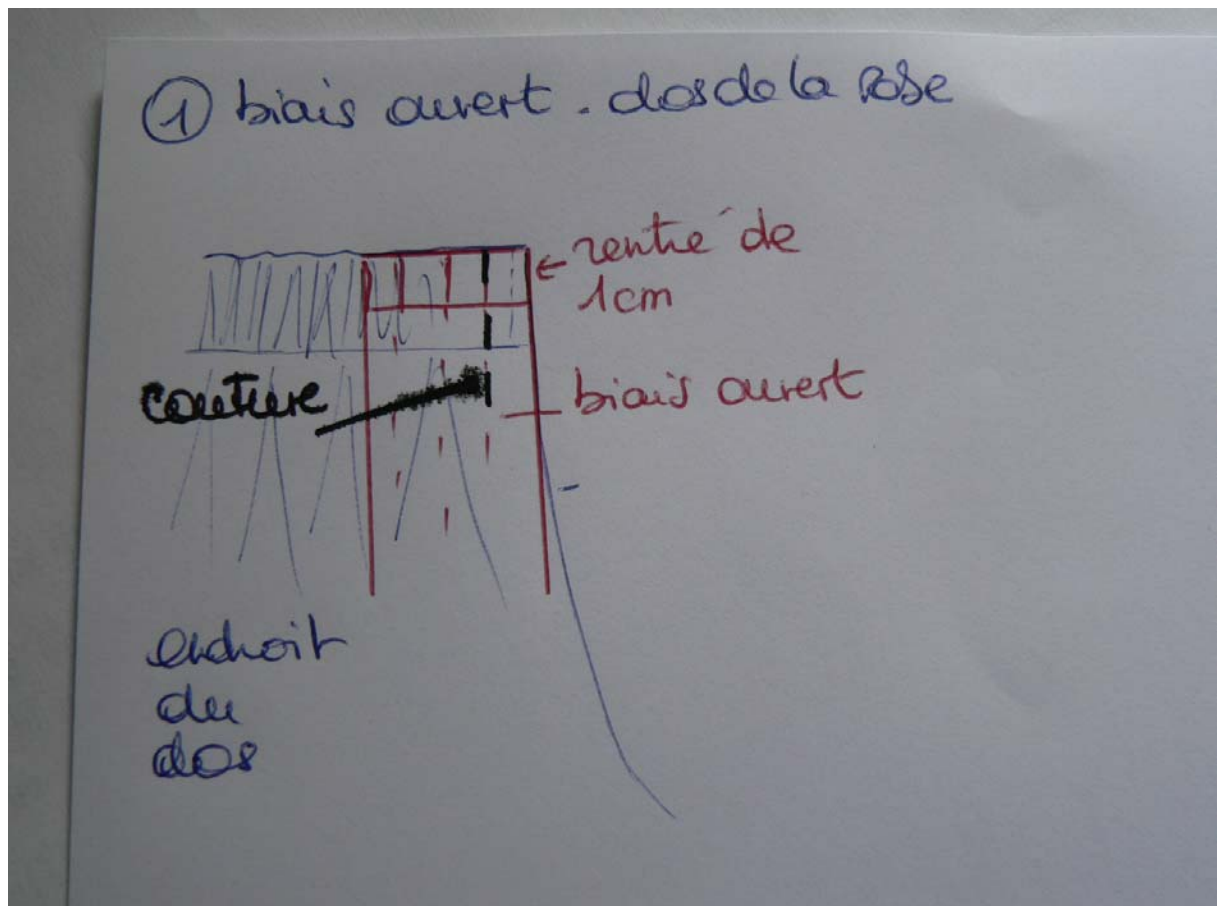 ① biais ouvert. dos de la robe
← rentré de
1cm
couture
biais ouvert
endroit
du
dos